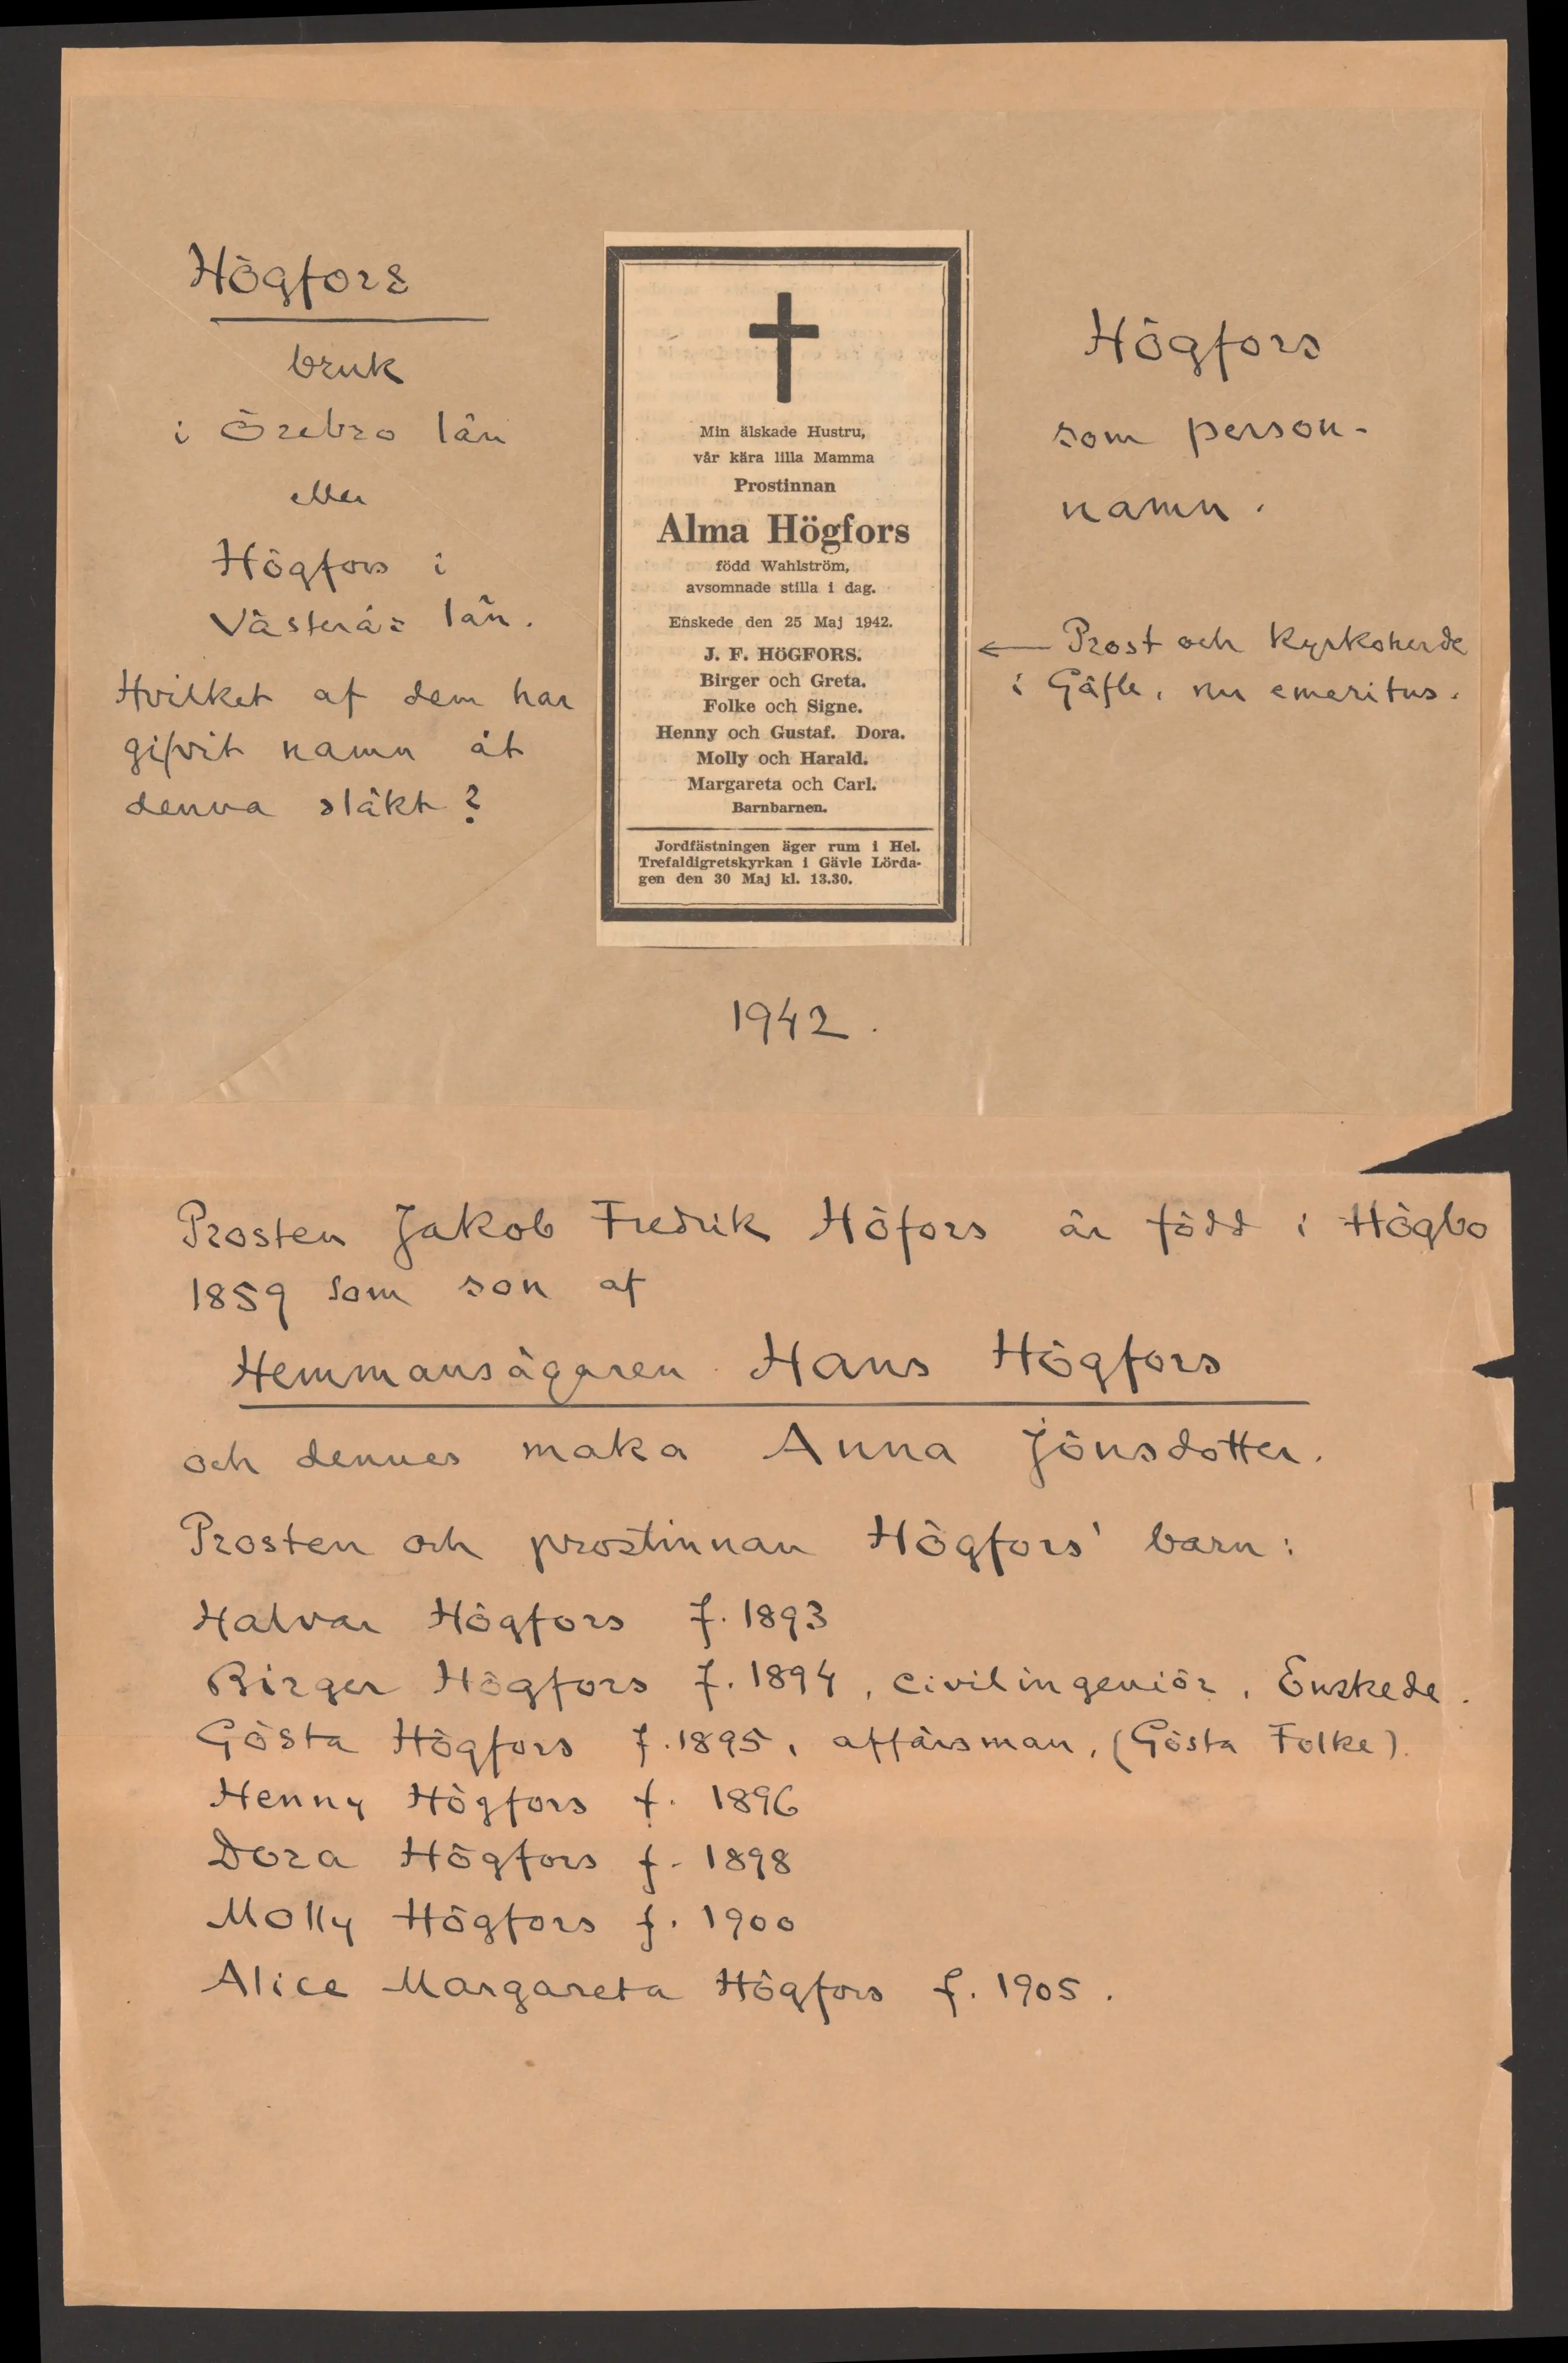 Högfors
bruk
i Örebro län
eller
Högfors i
Västerås län.
Hvilket af dem har
gifvit namn åt
denna släkt?
Min älskade Hustru,
vår kära lilla Mamma
Prostinnan
Alma Högfors
född Wahlström,
avsomnade stilla i dag.
Enskede den 25 Maj 1942.
J. F. HÖGFORS.
Birger och Greta.
Folke och Signe.
Henny och Gustaf. Dora.
Molly och Harald.
Margareta och Carl.
Barnbarnen.
Jordfästningen äger rum i Hel.
Trefaldigretskyrkan i Gävle Lörda-
gen den 30 Maj kl. 13.30.
Högfors
som person-
namn.
← Prost och Kyrkoherde
i Gäfle, nu emeritus.
1942.
Prosten Jakob Fredrik Höfors är född i Högbo
1859 som son af
Hemmansägaren Hans Högfors
och dennes maka Anna Jönsdotter.
Prosten och prostinnan Högfors' barn:
Halvar Högfors f. 1893
Birger Högfors f. 1894, civilingeniör, Enskede.
Gösta Högfors f. 1895, affärsman, (Gösta Folke).
Henny Högfors f. 1896
Dora Högfors f. 1898
Molly Högfors f. 1900
Alice Margareta Högfors f. 1905.